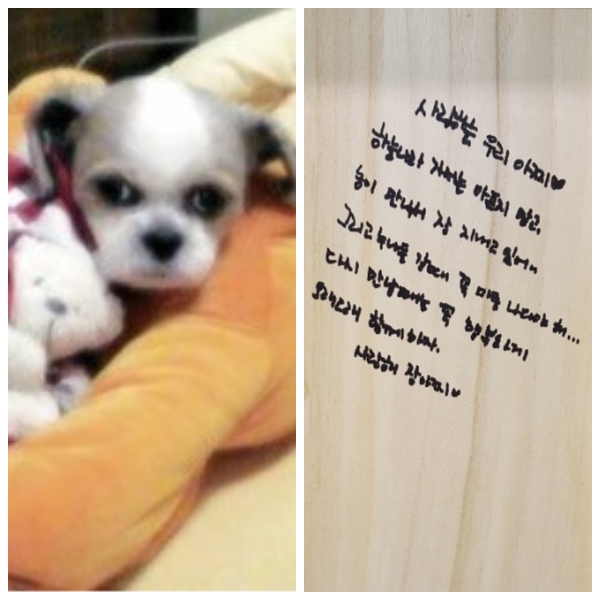 사랑하는 우리 아찌♥
하늘나라 가서는 아프지 말고,
잘 지내고 있어~
그리고 누나를 갈때 꼭 마중 나와야 해...
다시 만날때는 꼭 행복하게
오래오래 함께하자.
사랑해 장아찌♥